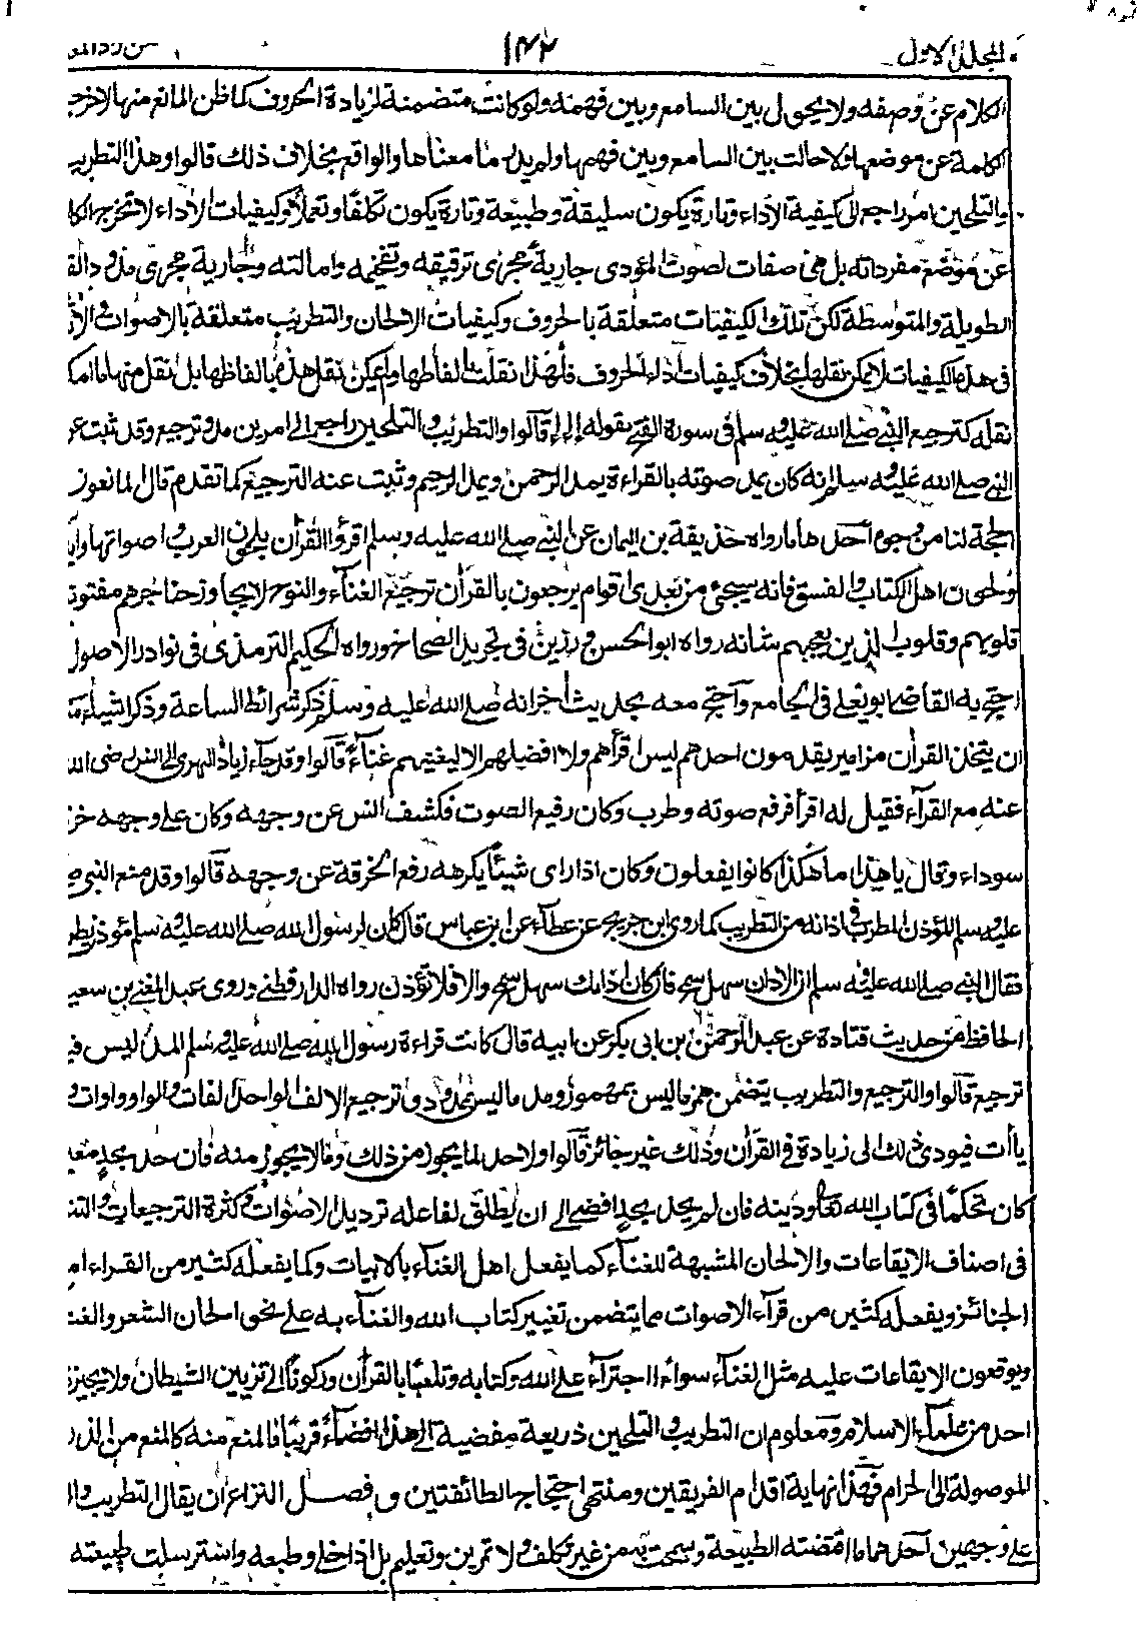 المجلد الاول ١٤٢
الكلام عن وصفه ولا يحول بين السامع وبين فهمه ولو كانت متضمنة لزيادة الحروف كما ظن المانع منها لاخرجت
الكلمة عن موضعها ولاحالت بين السامع وبين فهمها ولم يدر ما معناها والواقع بخلاف ذلك قالوا وهذا التطريب
والتلحين امر راجع الى كيفية الاداء وتارة يكون سليقة وطبيعة وتارة يكون تكلفا وتعملا وكيفيات الاداء لا تخرج الكلا
عن موضع مفرداته بل هى صفات لصوت المؤدى جارية مجرى ترقيقه وتفخيمه وامالته وجارية مجرى مدود القر
الطويلة والمتوسطة لكن تلك الكيفيات متعلقة بالحروف وكيفيات الالحان والتطريب متعلقة بالاصوات و الاثا
فى هذه الكيفيات لا يمكن نقلها بخلاف كيفيات اداء الحروف فلهذا نقلت الفاظها ولم يمكن نقل هذه بالفاظها بل نقل منها ما امكن
نقله كترجيع النبى صلى الله عليه وسلم فى سورة الفتح بقوله إإإ قالوا والتطريب والتلحين راجع الى امرين مد وترجيع وقد ثبت عن
النبى صلى الله عليه وسلم انه كان يمد صوته بالقراءة يمد الرحمن ويمد الرحيم وثبت عنه الترجيع كما تقدم قال المانعون
الحجة لنا من وجوه احدها ما رواه حذيفة بن اليمان عن النبى صلى الله عليه وسلم اقرؤا القران بلحون العرب واصواتها وايا
ولحون اهل الكتاب والفسق فانه سيجئ من بعدى اقوام يرجعون بالقران ترجيع الغناء والنوح لا يجاوز حناجرهم مفتونة
قلوبهم وقلوب الذين يعجبهم شانه رواه ابو الحسن رزين فى تجريد الصحاح ورواه الحكيم الترمذى فى نوادر الاصول
احتج به القاضى ابو يعلى فى الجامع واحتج معه بحديث اخر انه صلى الله عليه وسلم ذكر شرائط الساعة وذكر اشياء من
ان يتخذ القران مزامير يقدمون احدهم ليس اقرأهم ولا افضلهم الا ليغنيهم غناء قالوا وقد جاء زياد النهدى الى انس رضى الله
عنه مع القراء فقيل له اقرأ فرفع صوته وطرب وكان رفيع الصوت فكشف انس عن وجهه وكان على وجهه خر
سوداء وقال يا هذا ما هكذا كانوا يفعلون وكان اذا راى شيئا يكرهه رفع الخرقة عن وجهه قالوا وقد منع النبى ص
عليه وسلم المؤذن المطرب فى اذانه من التطريب كما روى ابن جريج عن عطاء عن ابن عباس قال كان لرسول الله صلى الله عليه وسلم مؤذن يطر
فقال النبى صلى الله عليه وسلم ان الاذان سهل سمح فان كان اذانك سهل سمح والا فلا تؤذن رواه الدارقطنى وروى عبد الغنى بن سعيد
الحافظ من حديث قتادة عن عبد الرحمن بن ابى بكر عن ابيه قال كانت قراءة رسول الله صلى الله عليه وسلم المد ليس فيه
ترجيع قالوا والترجيع والتطريب يتضمن همز ما ليس بمهموز ومد ما ليس بممدود و ترجيع الالف الواحد الفات والواو واوات و
ياآت فيودى ذلك الى زيادة فى القران وذلك غير جائز قالوا ولا حد لما يجوز من ذلك وما لا يجوز منه فان حد بحد معين
كان تحكما فى كتاب الله تعالى ودينه فان لم يحد بحد افضى الى ان يطلق لفاعله ترديد الاصوات وكثرة الترجيعات والتن
فى اصناف الايقاعات والالحان المشبهة للغناء كما يفعل اهل الغناء بالابيات وكما يفعله كثير من القراء اما
الجنائز ويفعله كثير من قراء الاصوات مما يتضمن تغيير كتاب الله والغناء به على نحو الحان الشعر والغنا
ويوقعون الايقاعات عليه مثل الغناء سواء اجتراء على الله وكتابه وتلعبا بالقران وركونا الى تزيين الشيطان ولا يجيز ذ
احد من علماء الاسلام ومعلوم ان التطريب والتلحين ذريعة مفضية الى هذا افضاء قريبا فالمنع منه كالمنع من الذر
الموصولة الى الحرام فهذا نهاية اقدام الفريقين ومنتهى احتجاج الطائفتين و فصل النزاع ان يقال التطريب وال
على وجهين احدهما ما اقتضته الطبيعة وسمحت به من غير تكلف ولا تمرين وتعليم بل اذا خلى وطبعه واسترسلت طبيعته